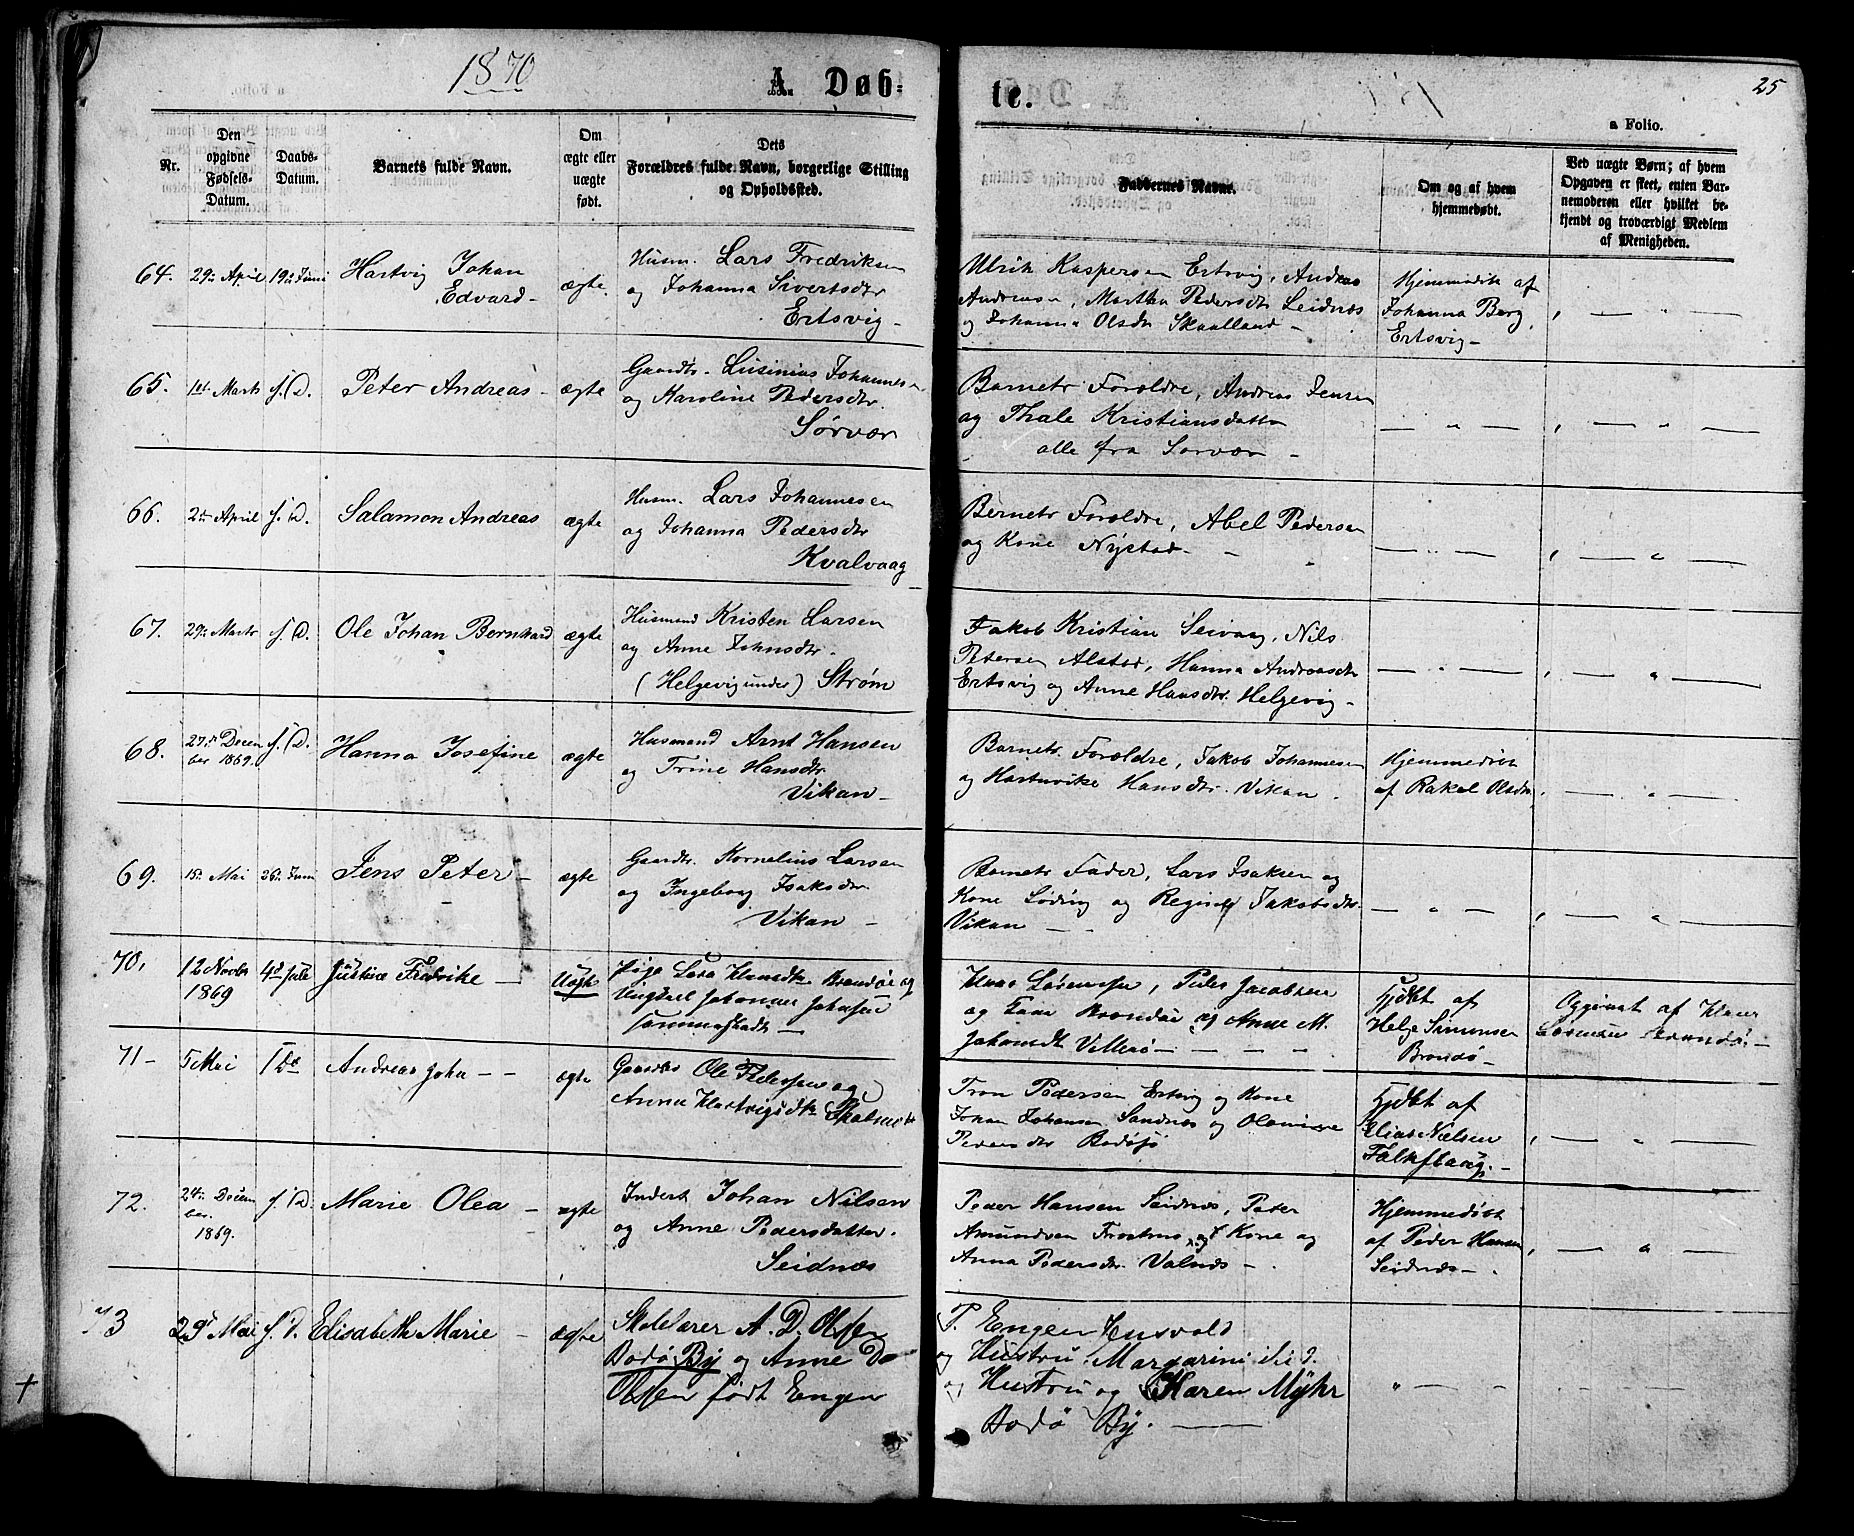 1870
A Døb-
te.
25
a Folio.
Nr.
Den
opgivne
Fødsels-
Datum.
Daabs-
Datum.
Barnets fulde Navn.
Om
ægte eller
uægte
født.
Dets
Forældres fulde Navn, borgerlige Stilling
og Opholdssted.
Faddernes Navne.
Om og af hvem
hjemmedøbt.
Ved uægte Børn; af hvem
Opgaven er skeet, enten Bar-
nemoderen eller hvilket be-
kjendt og troværdigt Medlem
af Menigheden.
64. 29de April 19de Juni Hartvig Johan
Edvard -
ægte
Husm. Lars Fredriksen
og Johanna Sivertsdtr
Ertsvig -
Ulrik Kaspersen Ertsvig, Andreas
Andreasen, Martha Pedersdtr Seidnæs
og Johanna Olsdtr Skaalland -
Hjemmedøbt af
Johanna Berg,
Ertsvig -
65. 1ste Marts s. D. Peter Andreas - ægte
Gaardbr. Lusinius Johannesen
og Karoline Pedersdtr.
Sørvær
Barnets Forældre, Andreas Jensen
og Thale Kristiansdatter
alle fra Sørvær -
66. 2den April s. D. Salamon Andreas ægte
Husm. Lars Johannesen
og Johanna Pedersdtr
Kvalvaag
Barnets Forældre, Abel Pedersen
og Kone Nystad -
67. 29de Marts s. D. Ole Johan Bernhard ægte
Husmand Kristen Larsen
og Anne Johnsdtr.
(Helgevig under) Strøm
Jakob Kristian Seivaag, Nils
Petersen Alstad, Hanna Andreasdtr
Ertsvig og Anne Hansdtr. Helgevig -
68. 27de Decem
ber 1869. s. D. Hanna Josefine ægte
Husmand Arnt Hansen
og Trine Hansdtr.
Vikan -
Barnets Forældre, Jakob Johannesen
og Hartvikke Hansdtr. Vikan
Hjemmedøbt
af Rakel Olsdtr.
69. 15de Mai 26de Juni Jens Peter - ægte
Gaardbr. Kornelius Larsen
og Ingeborg Isaksdtr
Vikan -
Barnets Fader, Lars Isaksen og
Kone Løding og Regine Jakobsdtr.
Vikan -
70, 12 Novbr
1869 4de Juli Justine Fredrike - Uægte
Pige Sara Hansdtr Brandøe og
Ungkarl Johannes Johnsen
og Anne M.
Johansdtr Villerø -
Hjdøbt af
Helge Simonsen
Brandø -
Opgivet af
71 - 5 Mai Andreas John - - ægte
Gaardbr Ole Pedersen og
Anna Hartvigsdtr
Tron Pedersen Ertsvig og Kone
Johan Johansen Sandnæs og Olamine
Pedersdtr Bodøsjø
Hjdøbt af
Elias Nielsen
Falkflaug. -
72. 24de Decem
ber.
1869. s. D. Marie Olea - ægte
Inderst Johan Nilsen
og Anne Pedersdatter.
Seidnæs
Peder Hansen Seidnæs, Peter
Amundsen Trostnes og Kone og
Anna Pedersdtr Valnæs -
Hjemmedøbt
af Peder Hansen
Seidnæs -
73 29de Mai s. D. Elisabeth Marie - ægte
Skolelærer A. D. Olsen
Bodø By og Anne D
Olsen født Engen
P. Engen
og Hustru,
og Hustru og Karen Myhr
Bodø By.